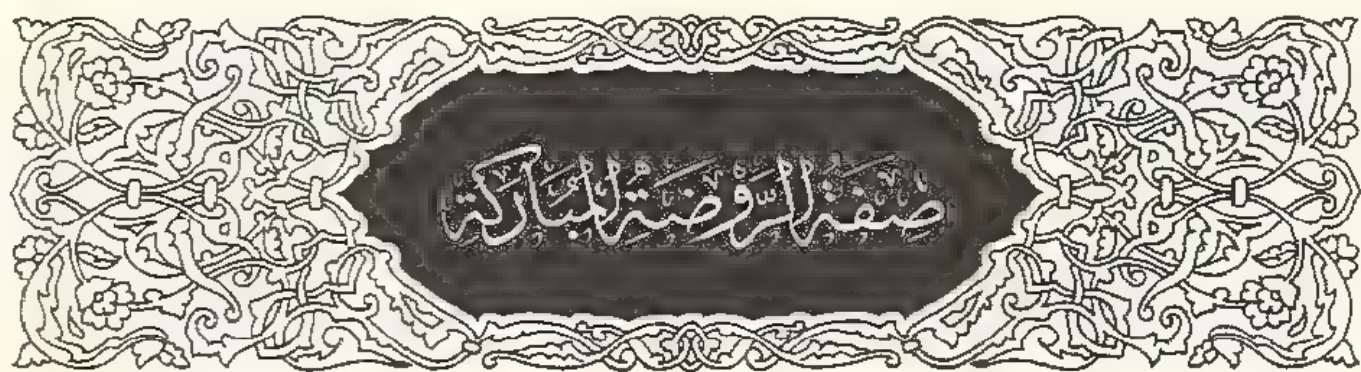 صِفَةُ الرَّوْضَةِ الْمُبَارَكَةِ